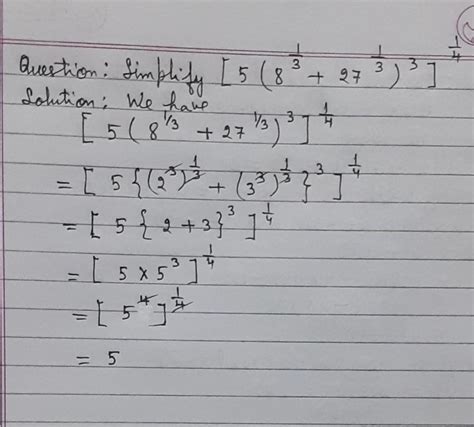 Question: Simplify [5(8^{1/3} + 27^{1/3})^3]^{1/4}
Solution: We have
[5(8^{1/3} + 27^{1/3})^3]^{1/4}
= [5{(2^3)^{1/3} + (3^3)^{1/3}}^3]^{1/4}
= [5{2+3}^3]^{1/4}
= [5 × 5^3]^{1/4}
= [5^4]^{1/4}
= 5